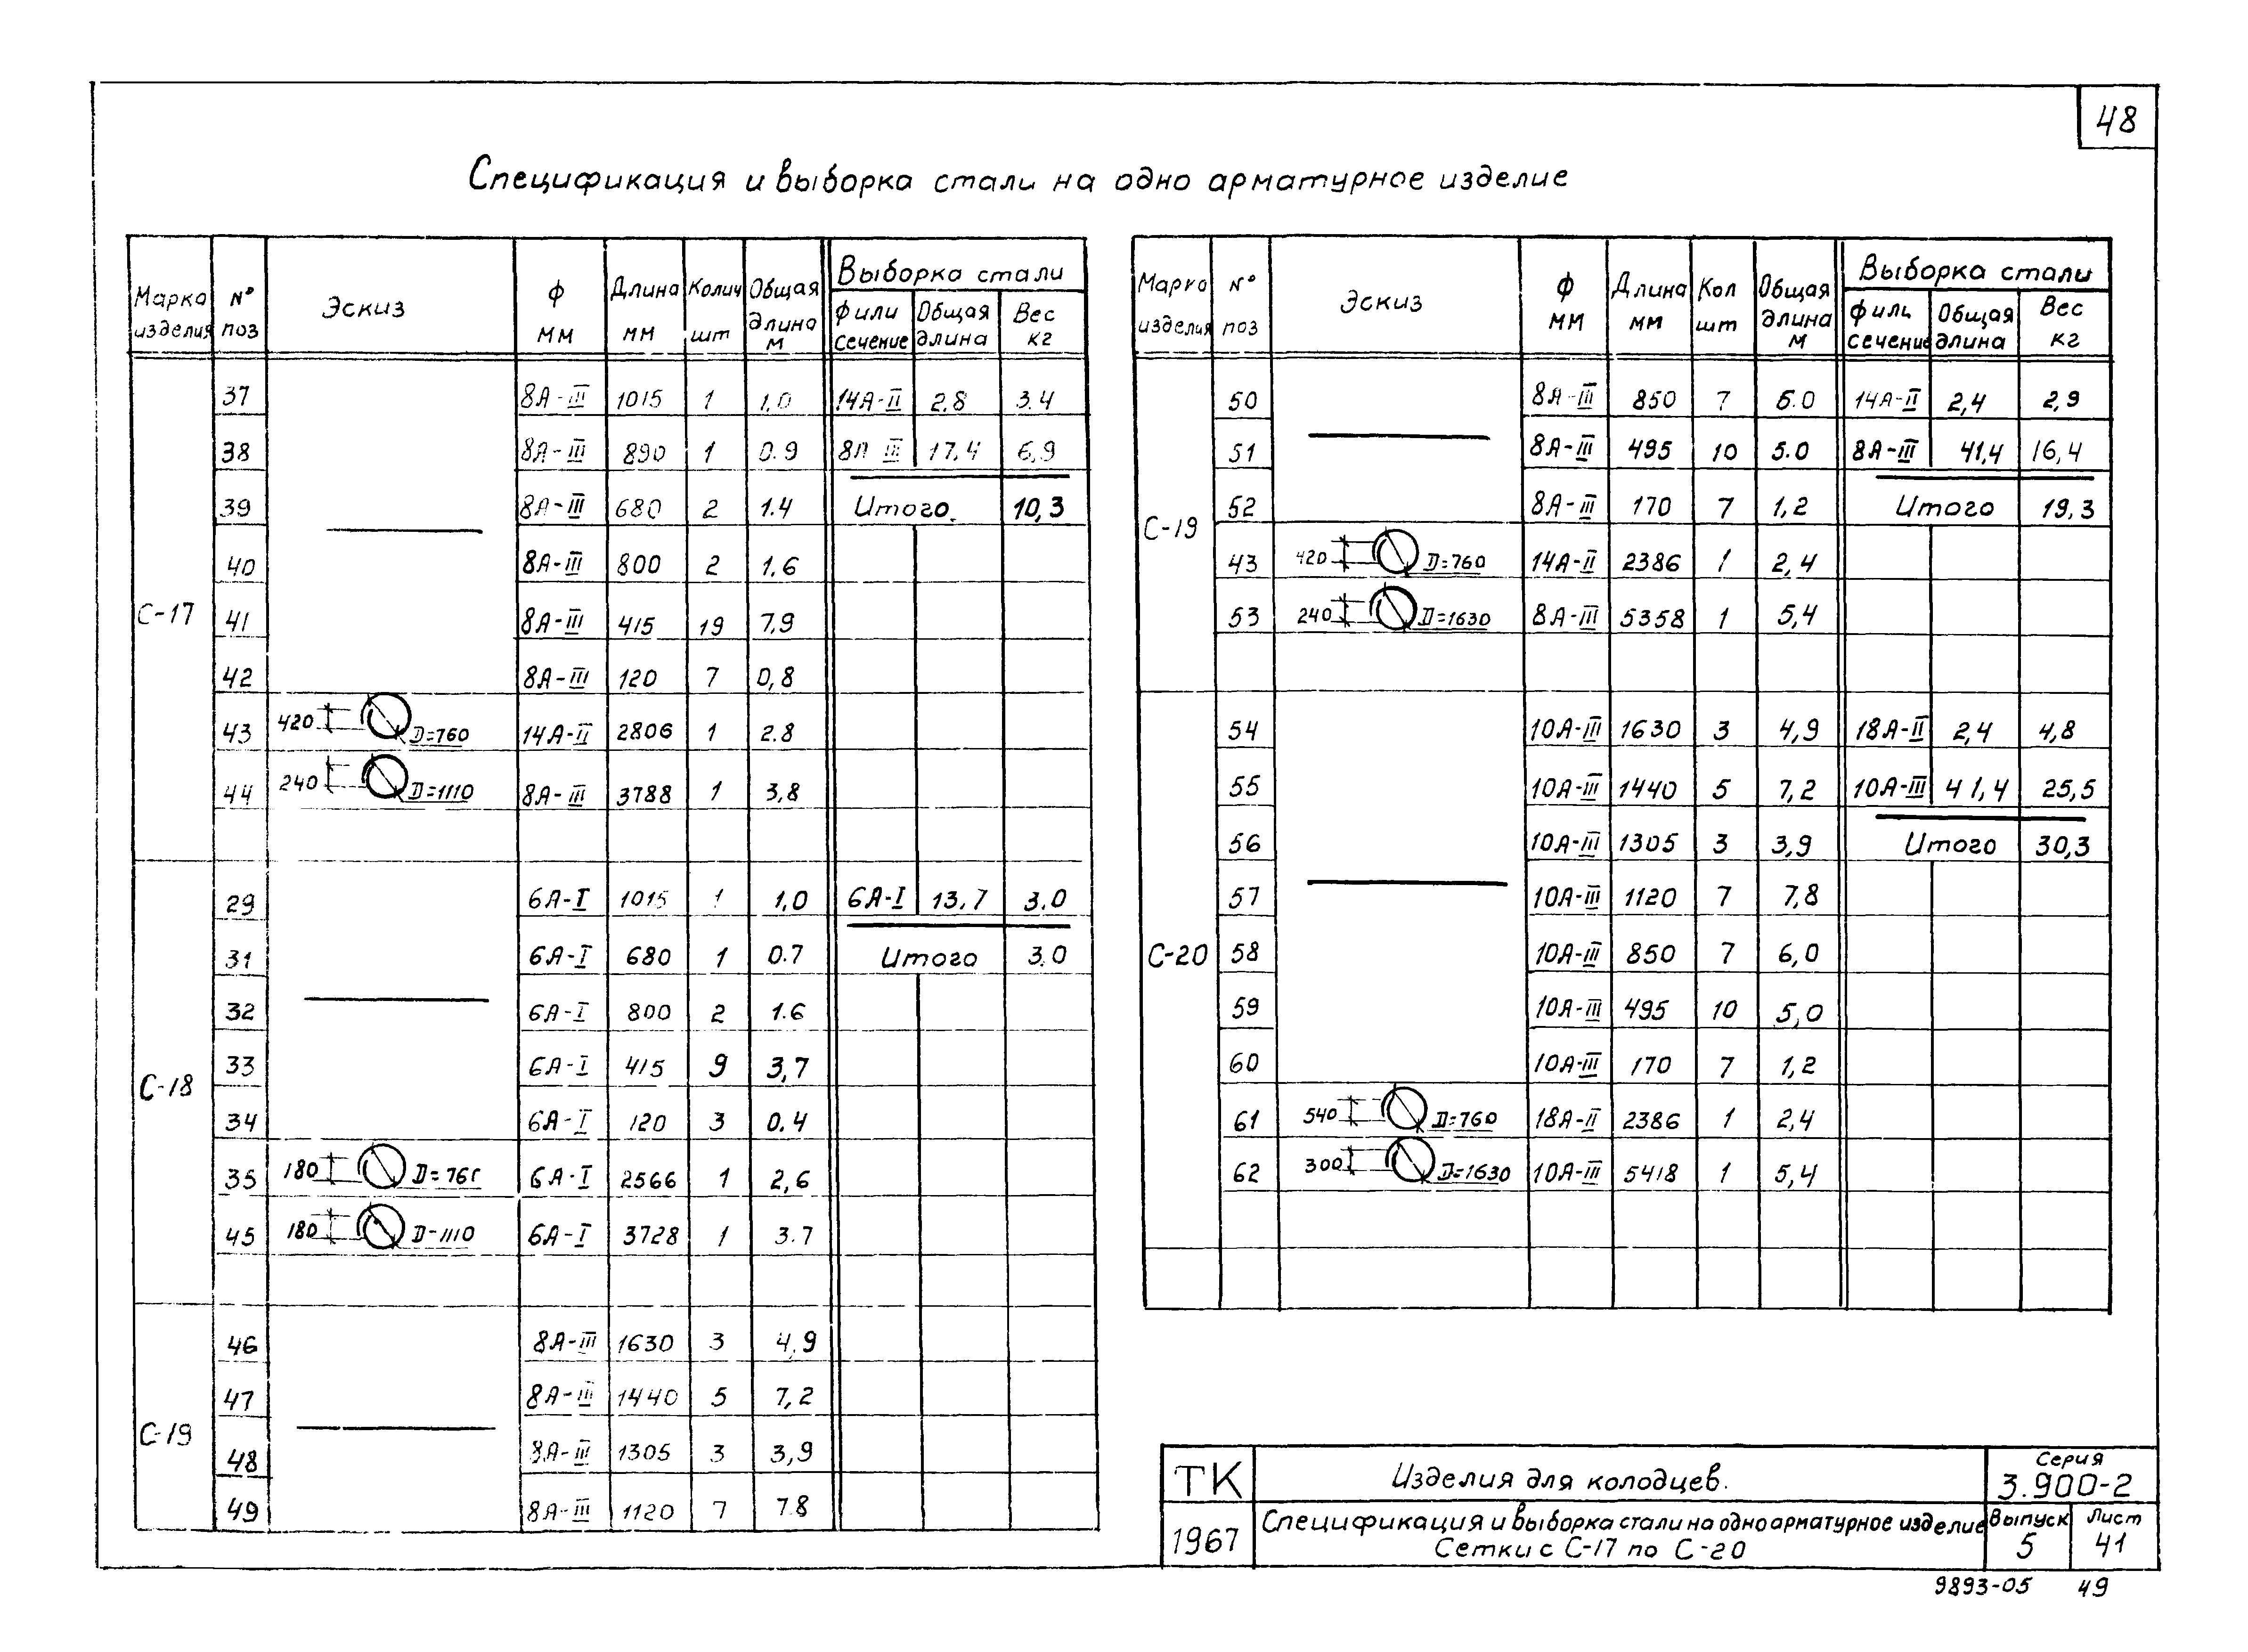 48
Спецификация и выборка стали на одно арматурное изделие
Марка изделия | № поз | Эскиз | ф мм | Длина мм | Колич шт | Общая длина м | Выборка стали
ф или сечение | Общая длина | Вес кг
С-17
37 | 8А-III | 1015 | 1 | 1,0 | 14А-II | 2.8 | 3.4
38 | 8А-III | 890 | 1 | 0.9 | 8А III | 17,4 | 6,9
39 | 8А-III | 680 | 2 | 1.4 | Итого. | 10,3
40 | 8А-III | 800 | 2 | 1.6
41 | 8А-III | 415 | 19 | 7,9
42 | 8А-III | 120 | 7 | 0,8
43 | 420 D=760 | 14А-II | 2806 | 1 | 2.8
44 | 240 D=1110 | 8А-III | 3788 | 1 | 3,8
С-18
29 | 6А-I | 1015 | 1 | 1,0 | 6А-I | 13,7 | 3.0
31 | 6А-I | 680 | 1 | 0.7 | Итого | 3.0
32 | 6А-I | 800 | 2 | 1.6
33 | 6А-I | 415 | 9 | 3,7
34 | 6А-I | 120 | 3 | 0.4
35 | 180 | 6А-I | 2566 | 1 | 2,6
45 | 180 D-1110 | 6А-I | 3728 | 1 | 3.7
С-19
46 | 8А-III | 1630 | 3 | 4,9
47 | 8А-III | 1440 | 5 | 7,2
48 | 8А-III | 1305 | 3 | 3,9
49 | 8А-III | 1120 | 7 | 7.8
Марка изделия | № поз | Эскиз | ф мм | Длина мм | Кол шт | Общая длина м | Выборка стали
ф или сечение | Общая длина | Вес кг
С-19
50 | 8А-III | 850 | 7 | 6.0 | 14А-II | 2,4 | 2,9
51 | 8А-III | 495 | 10 | 5.0 | 8А-III | 41,4 | 16,4
52 | 8А-III | 170 | 7 | 1,2 | Итого | 19,3
43 | 420 D=760 | 14А-II | 2386 | 1 | 2,4
53 | 240 D=1630 | 8А-III | 5358 | 1 | 5,4
С-20
54 | 10А-III | 1630 | 3 | 4,9 | 18А-II | 2,4 | 4,8
55 | 10А-III | 1440 | 5 | 7,2 | 10А-III | 41,4 | 25,5
56 | 10А-III | 1305 | 3 | 3,9 | Итого | 30,3
57 | 10А-III | 1120 | 7 | 7,8
58 | 10А-III | 850 | 7 | 6,0
59 | 10А-III | 495 | 10 | 5,0
60 | 10А-III | 170 | 7 | 1,2
61 | 540 D=760 | 18А-II | 2386 | 1 | 2,4
62 | 300 D=1630 | 10А-III | 5418 | 1 | 5,4
ТК
Изделия для колодцев.
Серия
3.900-2
1967
Спецификация и выборка стали на одно арматурное изделие
Сетки с С-17 по С-20
Выпуск
5
Лист
41
9893-05 49